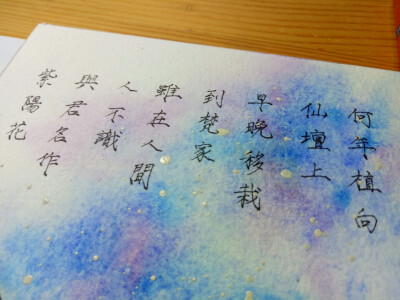 何年植向
仙壇上
早晚移栽
到梵家
雖在人間
人不識
與君名作
紫陽花